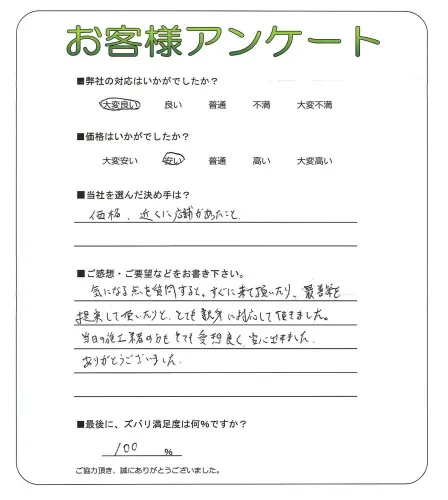 お客様アンケート
■弊社の対応はいかがでしたか？
大変良い 良い 普通 不満 大変不満
■価格はいかがでしたか？
大変安い 安い 普通 高い 大変高い
■当社を選んだ決め手は？
価格、近くに店舗があったこと
■ご感想・ご要望などをお書き下さい。
気になる点を質問すると、すぐに来て頂いたり、最善策を
提案して頂いたりと、とても親身に対応して頂きました。
当日の施工業者の方もとても愛想良く、安心出来ました。
ありがとうございました。
■最後に、ズバリ満足度は何%ですか？
100 %
ご協力頂き、誠にありがとうございました。